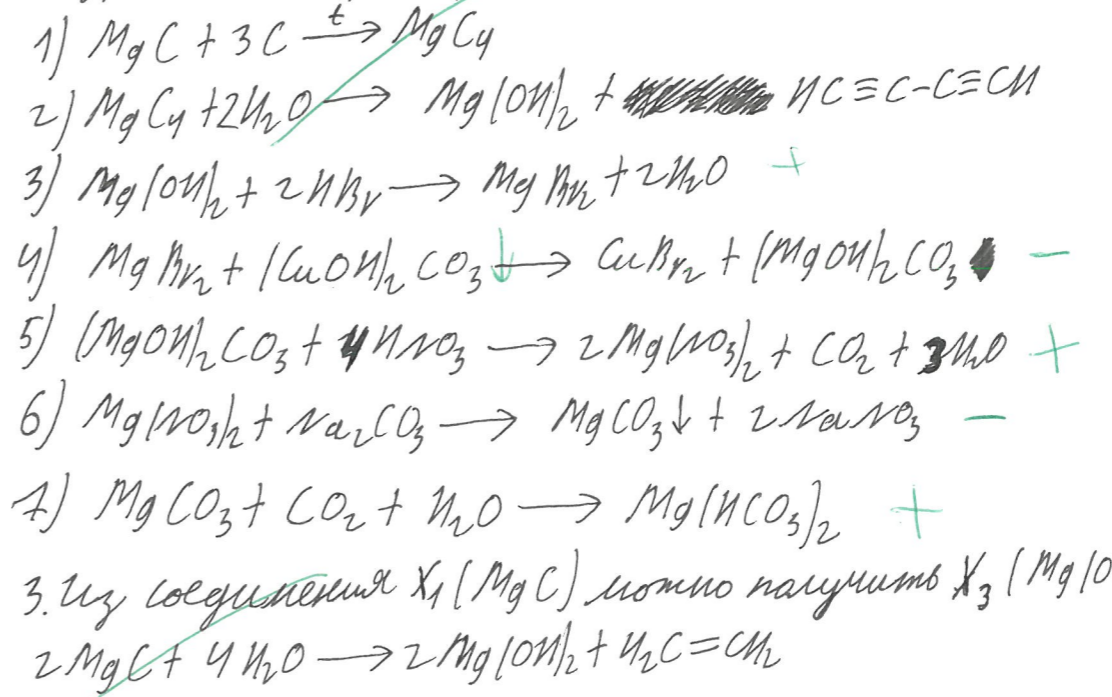 1) MgC + 3C →t MgC4
2) MgC4 + 2H2O → Mg(OH)2 + HC≡C-C≡CH
3) Mg(OH)2 + 2HBr → MgBr2 + 2H2O +
4) MgBr2 + (CuOH)2CO3↓ → CuBr2 + (MgOH)2CO3 −
5) (MgOH)2CO3 + 4HNO3 → 2Mg(NO3)2 + CO2 + 3H2O +
6) Mg(NO3)2 + Na2CO3 → MgCO3↓ + 2NaNO3 −
7) MgCO3 + CO2 + H2O → Mg(HCO3)2 +
3. Из соединения X1 (MgC) можно получить X3 (Mg(O
2MgC + 4H2O → 2Mg(OH)2 + H2C=CH2